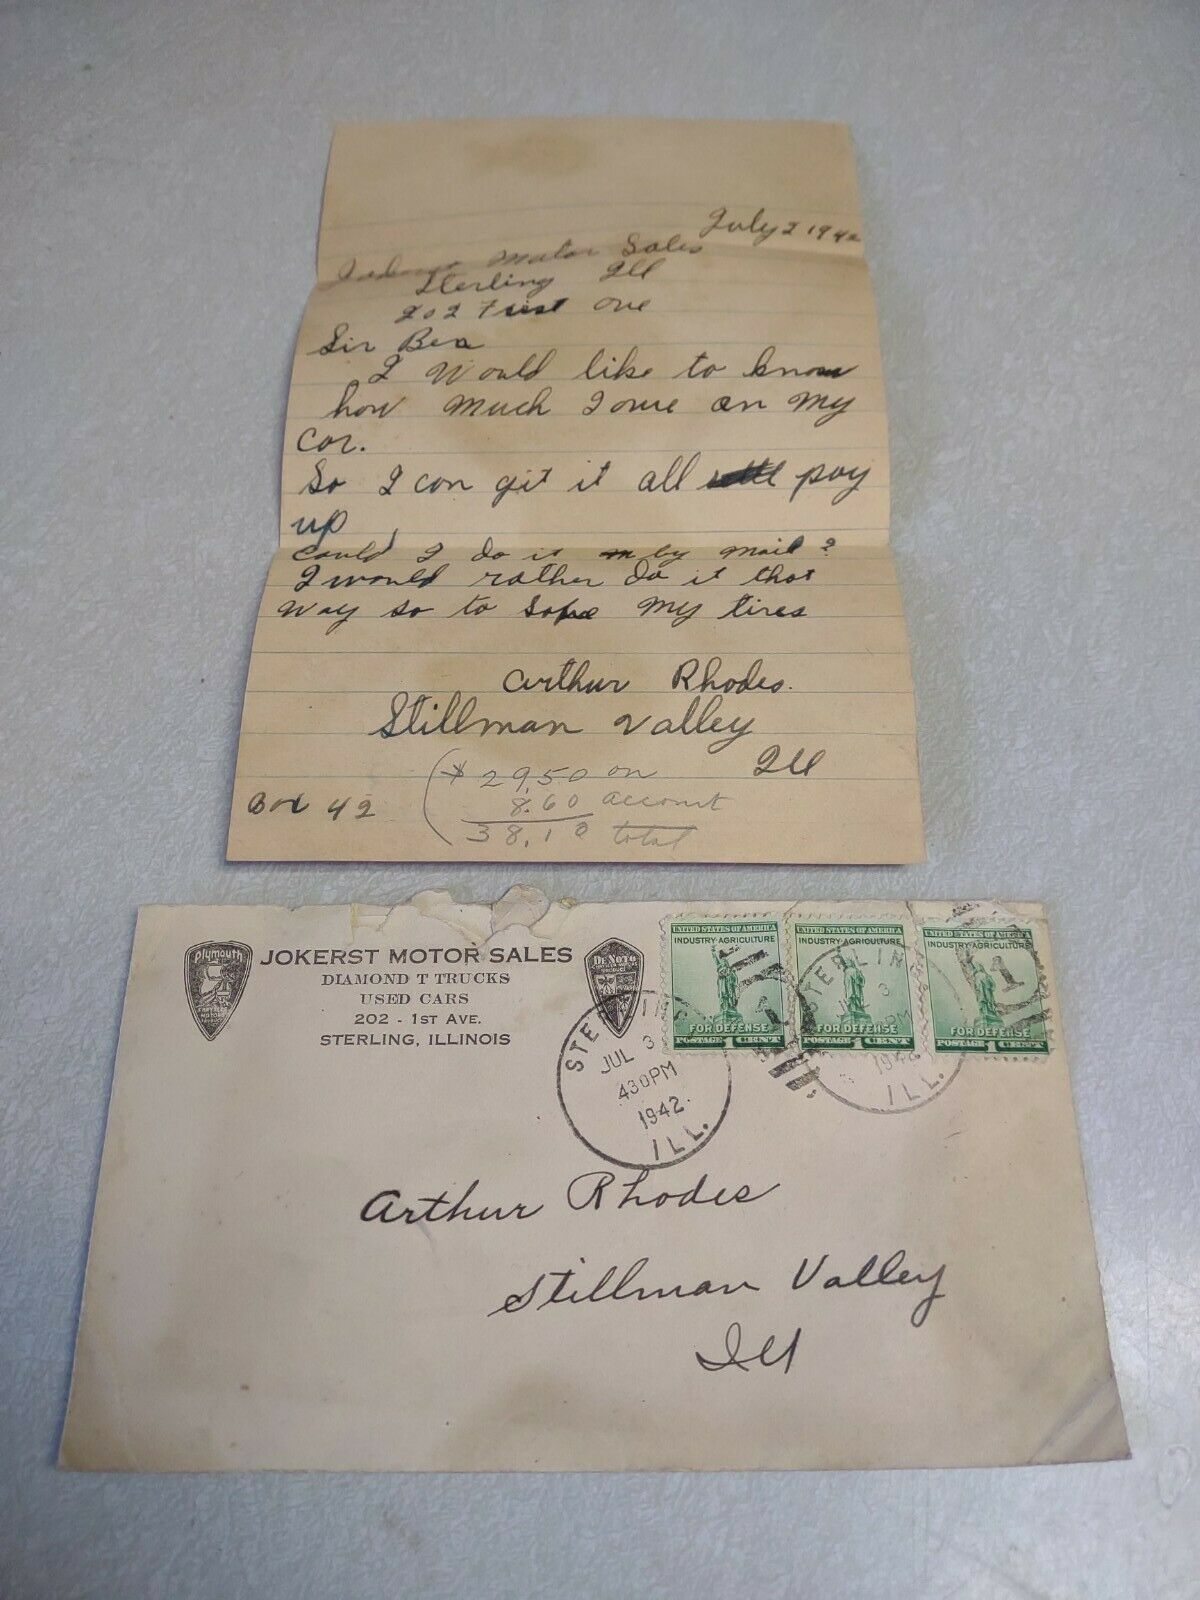 July 2 1942
Motor Sales
Sterling Ill
202 First ave
Sir
I Would like to know
how much I owe on my
car.
So I can git it all pay
up
Could I do it by mail?
I would rather do it that
way so to my tires
Arthur Rhodes.
Stillman Valley
Ill
Box 42
29.50 on
8.60 account
38.10 total
Plymouth
JOKERST MOTOR SALES
DIAMOND T TRUCKS
USED CARS
202 - 1ST AVE.
STERLING, ILLINOIS
DE SOTO
UNITED STATES OF AMERICA
INDUSTRY·AGRICULTURE
FOR DEFENSE
POSTAGE 1 CENT
UNITED STATES OF AMERICA
INDUSTRY·AGRICULTURE
FOR DEFENSE
POSTAGE 1 CENT
UNITED STATES OF AMERICA
INDUSTRY·AGRICULTURE
FOR DEFENSE
POSTAGE 1 CENT
1
JUL 3
430PM
1942.
ILL.
STERLIN
3
PM
1942
ILL.
Arthur Rhodes
Stillman Valley
Ill